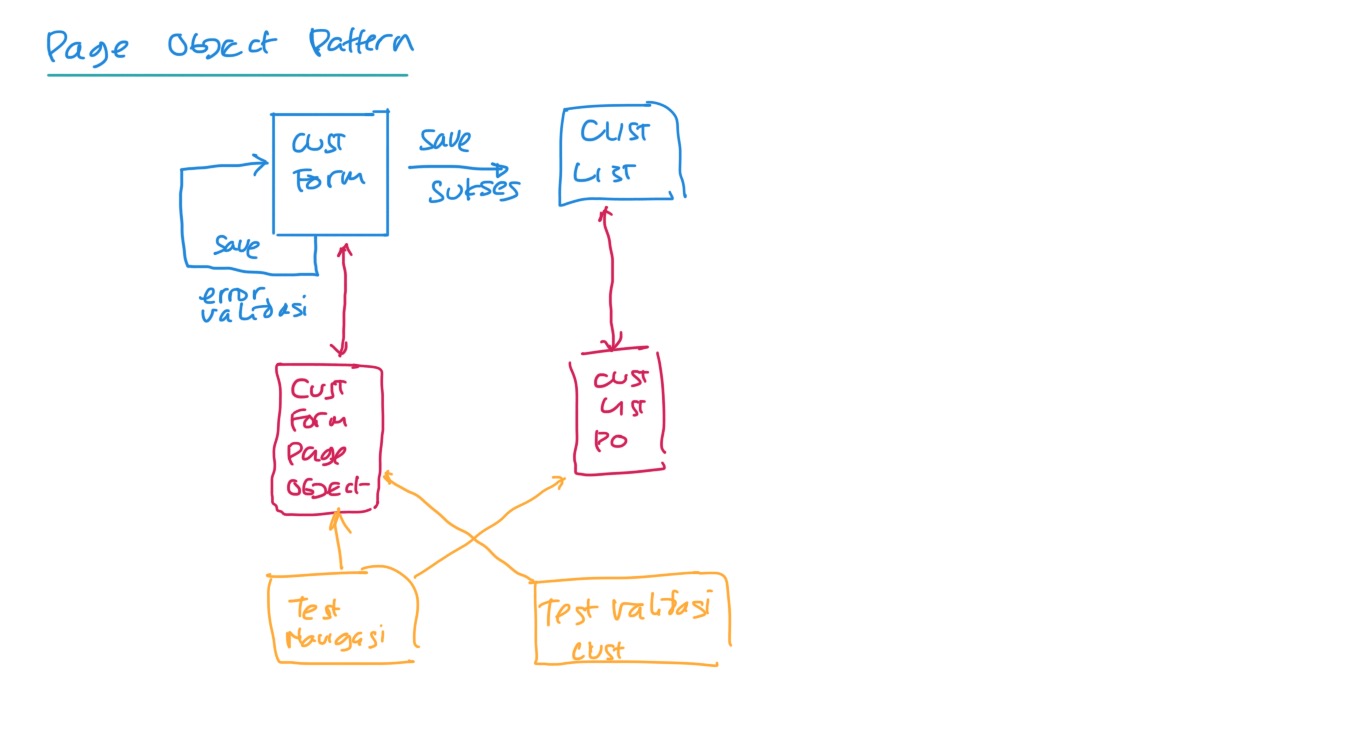 Page Object Pattern
Cust
Form
Save
Sukses
Cust
List
Save
error
validasi
Cust
Form
Page
Object
Cust
List
PO
Test
Navigasi
Test validasi
Cust